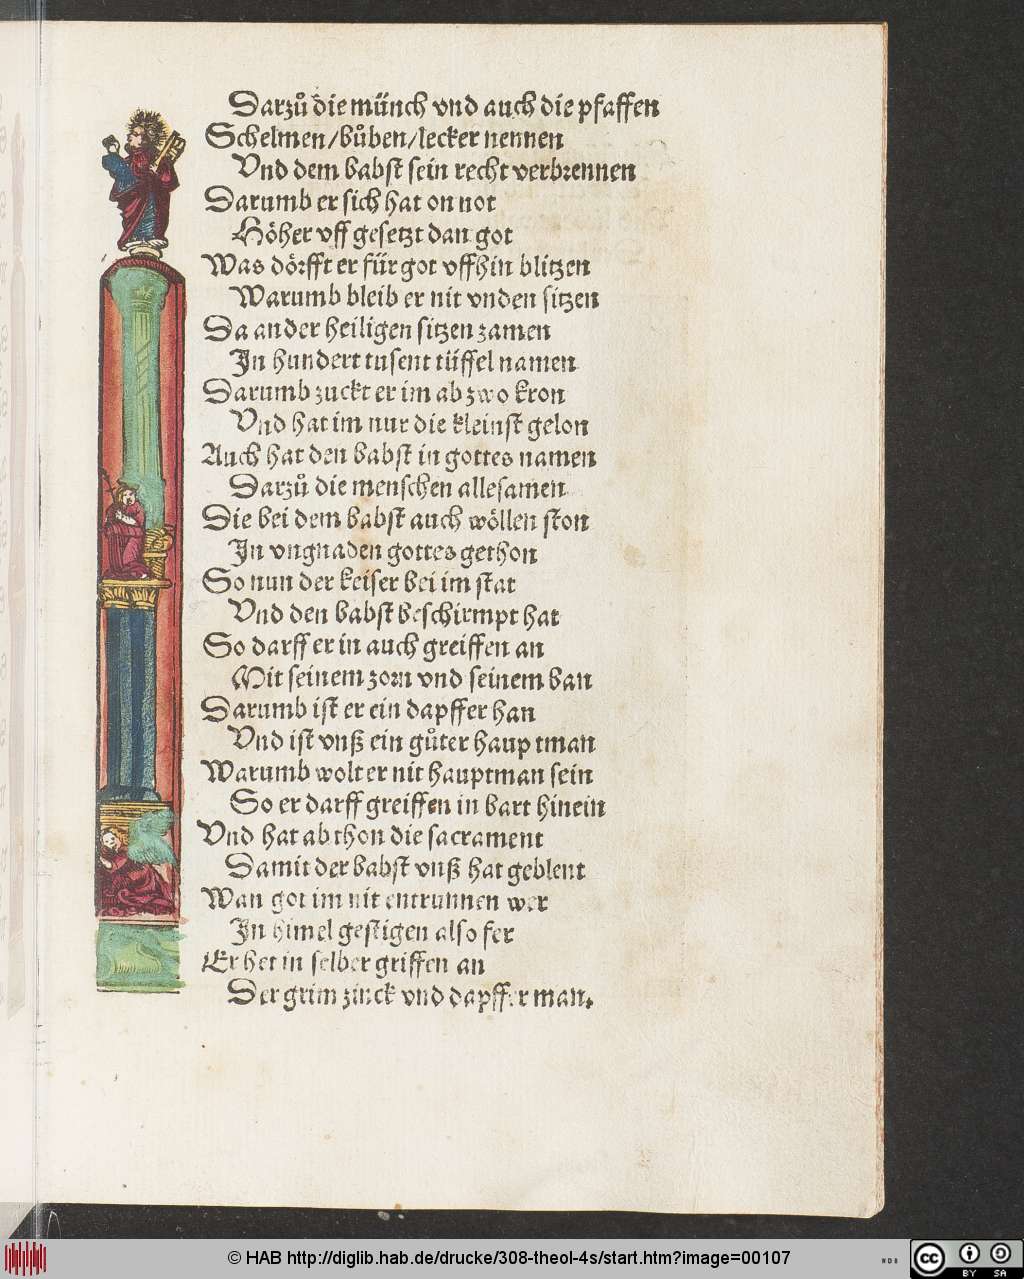 Darzů die münch vnd auch die pfaffen
Schelmen/bůben/lecker nennen
Vnd dem babst sein recht verbrennen
Darumb er sich hat on not
Höher vff gesetzt dan got
Was dörfft er für got vffhin blitzen
Warumb bleib er nit vnden sitzen
Da ander heiligen sitzen zamen
In hundert tusent tüffel namen
Darumb zuckt er im ab zwo kron
Vnd hat im nur die kleinst gelon
Auch hat den babst in gottes namen
Darzů die menschen allesamen
Die bei dem babst auch wöllen ston
In vngnaden gottes gethon
So nun der keiser bei im stat
Vnd den babst beschirmpt hat
So darff er in auch greiffen an
Mit seinem zorn vnd seinem ban
Darumb ist er ein dapffer han
Vnd ist vnß ein gůter hauptman
Warumb wolt er nit hauptman sein
So er darff greiffen in bart hinein
Vnd hat ab thon die sacrament
Damit der babst vnß hat geblent
Wan got im nit entrunnen wer
In himel gestigen also fer
Er het in selber griffen an
Der grim zinck vnd dapffer man.
© HAB http://diglib.hab.de/drucke/308-theol-4s/start.htm?image=00107
WDB
cc BY SA